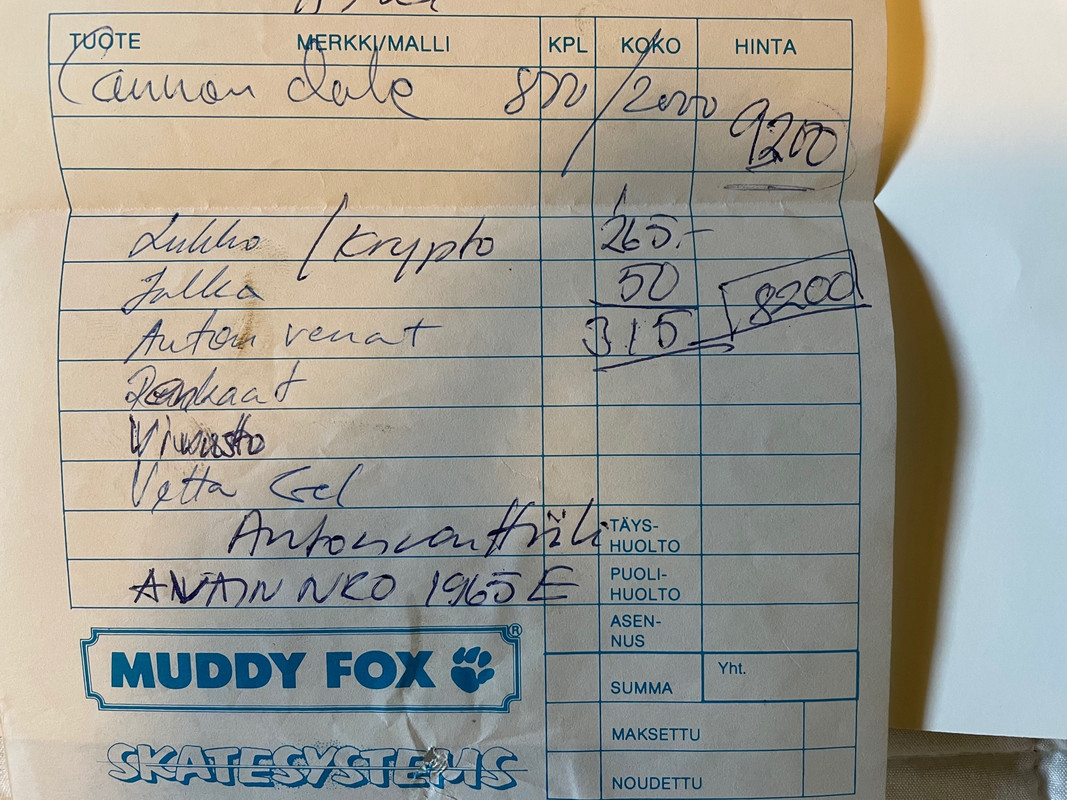 TUOTE MERKKI/MALLI KPL KOKO HINTA
Cannon dale 800/2000
9200
Lukko / Krypto 265.-
Jalka 50 8200
Auton venat 315
Renkaat
Viivasto
Vetta Gel
TÄYS-
HUOLTO
AVAIN NRO 1965E
PUOLI-
HUOLTO
ASEN-
NUS
MUDDY FOX ®
Yht.
SUMMA
MAKSETTU
SKATESYSTEMS
NOUDETTU